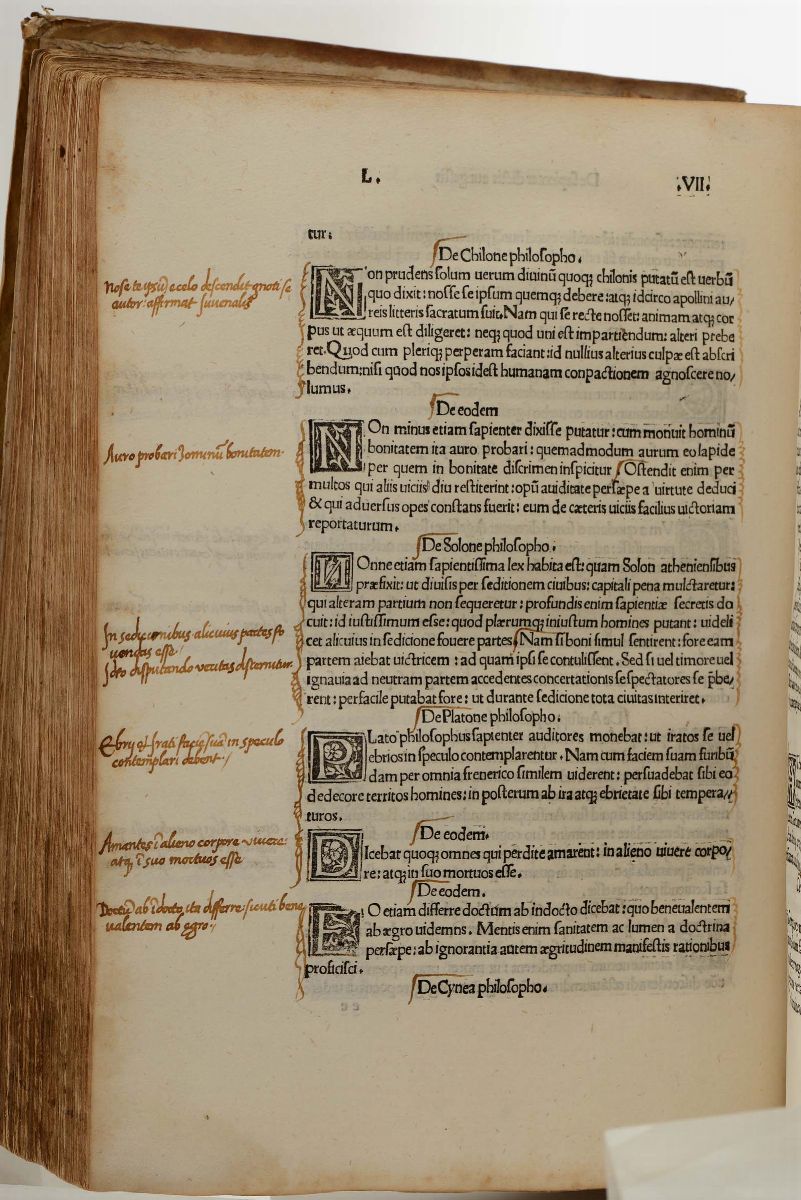 L.
.VII.
tur.
De Chilone philosopho.
Nose te ipsū e celo descendit gnoti se
autor: affirmat Iuvenalis
Non prudens solum uerum diuinū quoqꝫ chilonis putatū est uerbū
quo dixit: nosse se ipsum quemqꝫ debere: atqꝫ idcirco apollini au/
reis litteris sacratum fuit. Nam qui se recte nosset: animam atqꝫ cor
pus ut æquum est diligeret: neqꝫ quod uni est impartiendum: alteri prebe
ret. Quod cum pleriqꝫ perperam faciant: id nullius alterius culpæ est abscri
bendum: nisi quod nos ipsos idest humanam conpactionem agnoscere no/
lumus.
De eodem
Auro probari hominū bonitatem
NOn minus etiam sapienter dixisse putatur: cum monuit hominū
bonitatem ita auro probari: quemadmodum aurum eo lapide
per quem in bonitate discrimen inspicitur Ostendit enim per
multos qui aliis uiciis diu restiterint: opū auiditate persæpe a uirtute deduci
& qui aduersus opes constans fuerit: eum de cæteris uiciis facilius uictoriam
reportaturum.
De Solone philosopho.
NOnne etiam sapientissima lex habita est: quam Solon atheniensibus
præfixit: ut diuisis per seditionem ciuibus: capitali pena mulctaretur:
qui alteram partium non sequeretur: profundis enim sapientiæ secretis do
cuit: id iustissimum esse: quod plærumqꝫ iniustum homines putant: uideli
cet alicuius in sedicione fouere partes. Nam si boni simul sentirent: fore eam
partem aiebat uictricem: ad quam ipsi se contulissent. Sed si uel timore uel
ignauia ad neutram partem accedentes concertationis se spectatores se p̄be/
rent: perfacile putabat fore: ut durante sedicione tota ciuitas interiret.
In sedicionibus alicuius partes fo
vendas esse
Idro disputando veritas discernitur
De Platone philosopho.
Ebrij et Irati faciē suā in speculo
contemplari debent
PLato philosophus sapienter auditores monebat: ut iratos se uel
ebrios in speculo contemplarentur. Nam cum faciem suam furibū
dam per omnia frenerico similem uiderent: persuadebat sibi eo
dedecore territos homines: in posterum ab ira atqꝫ ebrietate sibi tempera/
turos.
De eodem.
Amantes ī alieno corpore vivere:
atqꝫ ī suo mortuos esse
DIcebat quoqꝫ omnes qui perdite amarent: in alieno uiuere corpo/
re: atqꝫ in suo mortuos esse.
De eodem.
Doctū ab ī docto ita differre sicuti bene
valentem ab egro
EO etiam differre doctum ab indocto dicebat: quo beneualentem
ab ægro uidemus. Mentis enim sanitatem ac lumen a doctrina
persæpe: ab ignorantia autem ægritudinem manifestis rationibus
proficisci.
De Cynea philosopho.